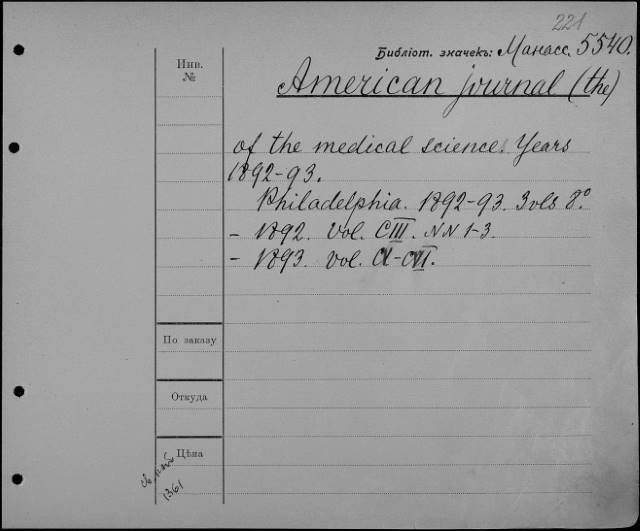 221
Библіот. значекъ: Манасс. 5540.
Инв.
№
American journal (the)
of the medical sciences. Years
1892-93.
Philadelphia. 1892-93. 3 vls 8.°
- 1892. Vol. CIII. NN 1-3.
- 1893. Vol. CV-CVI.
По заказу
Откуда
Цѣна
1361